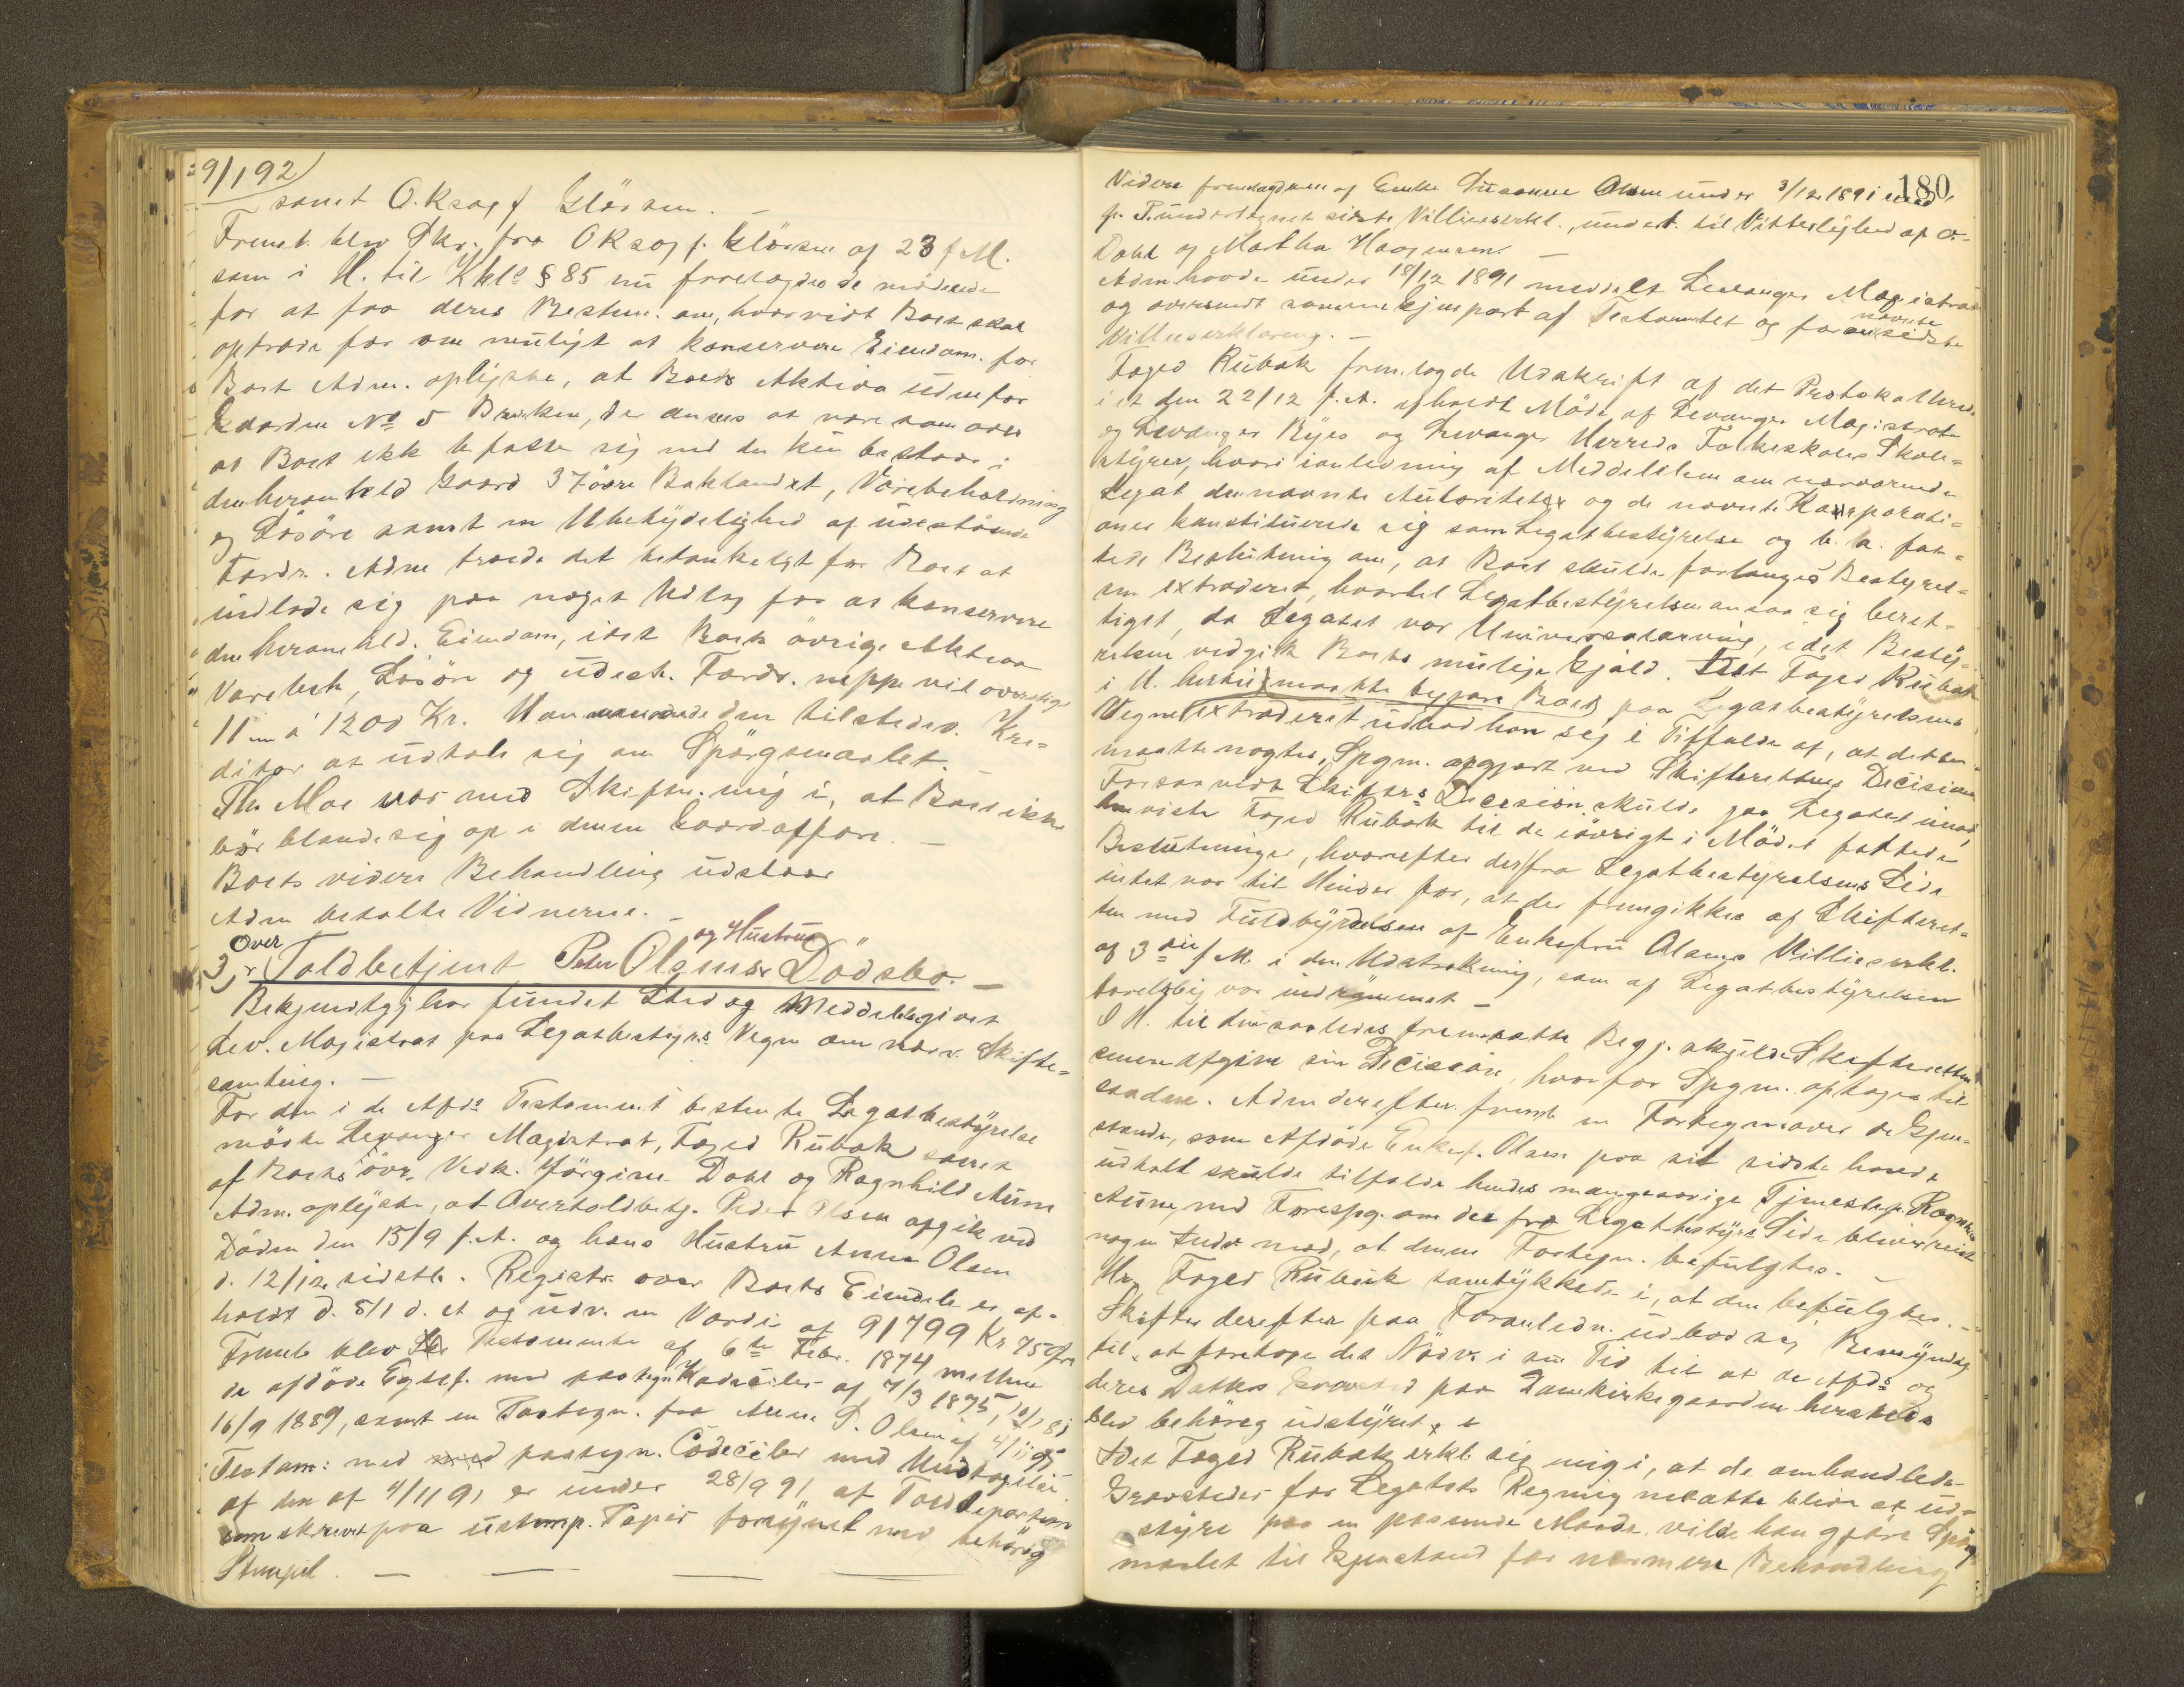 29/192
samt O.Rsagf Klörsen. —
Fremt. blev Skr. fra ORsagf. Klörsen af 23 f.M.
som i H. til Kkl. § 85 nu forelagdes de mödende
for at faa deres Bestem. om, hvorvidt Boet skal
optræde for om muligt at konservere Eiendom. for
Boet Adm. oplyste, at Boets Aktiva udenfor
Gaarden No 5 Bakken, der ansees at være
at Boet ikke befatter sig med den kun bestaar i
den heromhdld Gaard 37 övre Baklandet, Varebeholdning
og Lösöre samt en Ubetydelighed af udestaaende
Fordr. Adm troede det betænkeligt for Boet at
indlade sig paa noget Udlæg for at konservere
den heromhld. Eiendom, idet Boets övrige Aktiva
Vareleh, Lösöre og udest. Fordr. neppe vil overstige
11 á 1200 Kr. Han den tilstedev. Kre=
ditor at udtale sig om Spörgsmaalet. —
Th. Moe var med Skiftef. enig i, at Boet ikke
bör blande sig op i denne Gaardaffære. —
Boets videre Behandling udstaar
Adm betalte Vidnerne. —
og Hustrus
Over
3, Toldbetjent Peter Olsens Dödsbo. —
Bekjendtgj har fundet Sted og Meddelelse givet
Lev. Magistrat paa Legatbestyrs Vegne om nærv. Skifte=
samling. —
For den i de Afds Testament bestemte Legatbestyrelse
mödte Levanger Magistrat, Foged Rubak samt
af Boets övr. Vedk. Jörgine Dahl og Ragnhild Aune
Adm. oplyste, at Overtoldbetj. Peder Olsen afgik ved
Döden den 15/9 f.A. og hans Hustru Anne Olsen
d. 12/12 sidstl. Registr. over Boets Eiendele er af=
holdt d. 8/1 d. A og udv. en Værdi af 91799 Kr 75 Öre
Fremt. blev Testamente af 6te Febr. 1874 mellem
de afdöde Egtef. med paategn Kodeciler af 7/3 1875,
16/9 1889, samt en Paategn. fra Anne S. Olsen af 4/11 91
Testam: med paategn. Codeciler med Undtagelse
af den af 4/11 91 er under 28/9 91 af Told Departem
som skrevet paa ustemp. Papir forsynet med behörig
Stempel. — — — —
180
Videre fremlagdes en af Enke Susanne Olsen under 3/12 1891 med
p. P. undertegnet sidste Villieserkl., undert. til Vitterlighed af O.
Dahl og Martha Haagensen. —
Adm. havde under 18/12 1891 meddelt Levanger Magistrat
og oversendt samme Gjenpart af Testamentet og foran
nævnte
sidste
Villieserklæring. —
Foged Rubak fremlagde Udskrift af det Protokollerede
i et den 22/12 f.A. afholdt Möde af Levanger Magistrat
og Levanger Byes og Levanger Herreds Folkeskoles Skole=
styrer, hvori i anledning af Meddelelsen om nærværende
Legat de nævnte Autoriteter og de nævnte Korporati=
oner konstituerede sig som Legatbestyrelse og b. a. fat=
tede Beslutning om, at Boet skulde forlanges Bestyrel=
sen extraderet, hvortil Legatbestyrelsen ansaa sig beret=
tiget, da Legatet var Universalarving, idet Besty=
relsen vedgik Boets mulige Gjæld. Idet Foged Rubak
i H. hertil maatte begjære Boet paa Legatbestyrelsens
Vegne extraderet udbad han sig i Tilfælde af, at dette
maatte nægtes, Spgm. afgjort ved Skifterettens Decision
Forsaavidt Skifters Decision skulde gaa Legatet imod,
henviste Foged Rubak til de iövrigt i Mödet fattede
Beslutninger, hvorefter der fra Legatbestyrelsens Side
intet var til Hinder for, at der fremgikkes af Skifteret=
ten med Fuldbyrdelsen af Enkefru Olsens Villieserkl.
af 3die f M. i den Udstrækning, som af Legatbestyrelsen
foreløbig var indrömmet —
I H. til den saaledes fremsatte Begj. skulde Skifteretten
senere afgive sin Decision, hvorfor Spgm. optoges til
saadan. Adm derefter fremb en Fortegn over de Gjen=
stande, som Afdöde Enkef. Olsen paa sit sidste havde
udtalt skulde tilfalde hendes mangeaarige Tjenestep. Ragnhild
Aune, med Forespg. om der fra Legatbestyrs Side bliver reist
nogen Indv mod, at denne Fortegn. befulgtes. —
Hr. Foged Rubak samtykkede i, at den befulgtes. —
Skifter derefter paa Foranledn. udbad sig Bemyndig
til, at foretage det Nödv. i sin Tid til at de Afds og
deres Datters Gravsted paa Domkirkegaarden hersteds
blev behörig udstyret
Idet Foged Rubak erkl. sig enig i, at de omhandlede
Gravsteder for Legatets Regning maatte blive at ud=
styre paa en passende Maade, vilde han gjöre Spörgs
maalet til Gjenstand for nærmere Behandling